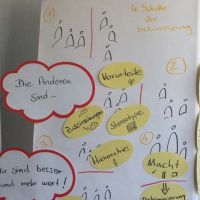 1)
4 Schritte
der
Diskriminierung
Die Anderen
sind...
Vorurteile
2)
Zuschreibungen
Stereotype
3)
Hierarchie
4)
Wir sind besser
und mehr wert!
Macht
Diskriminierung